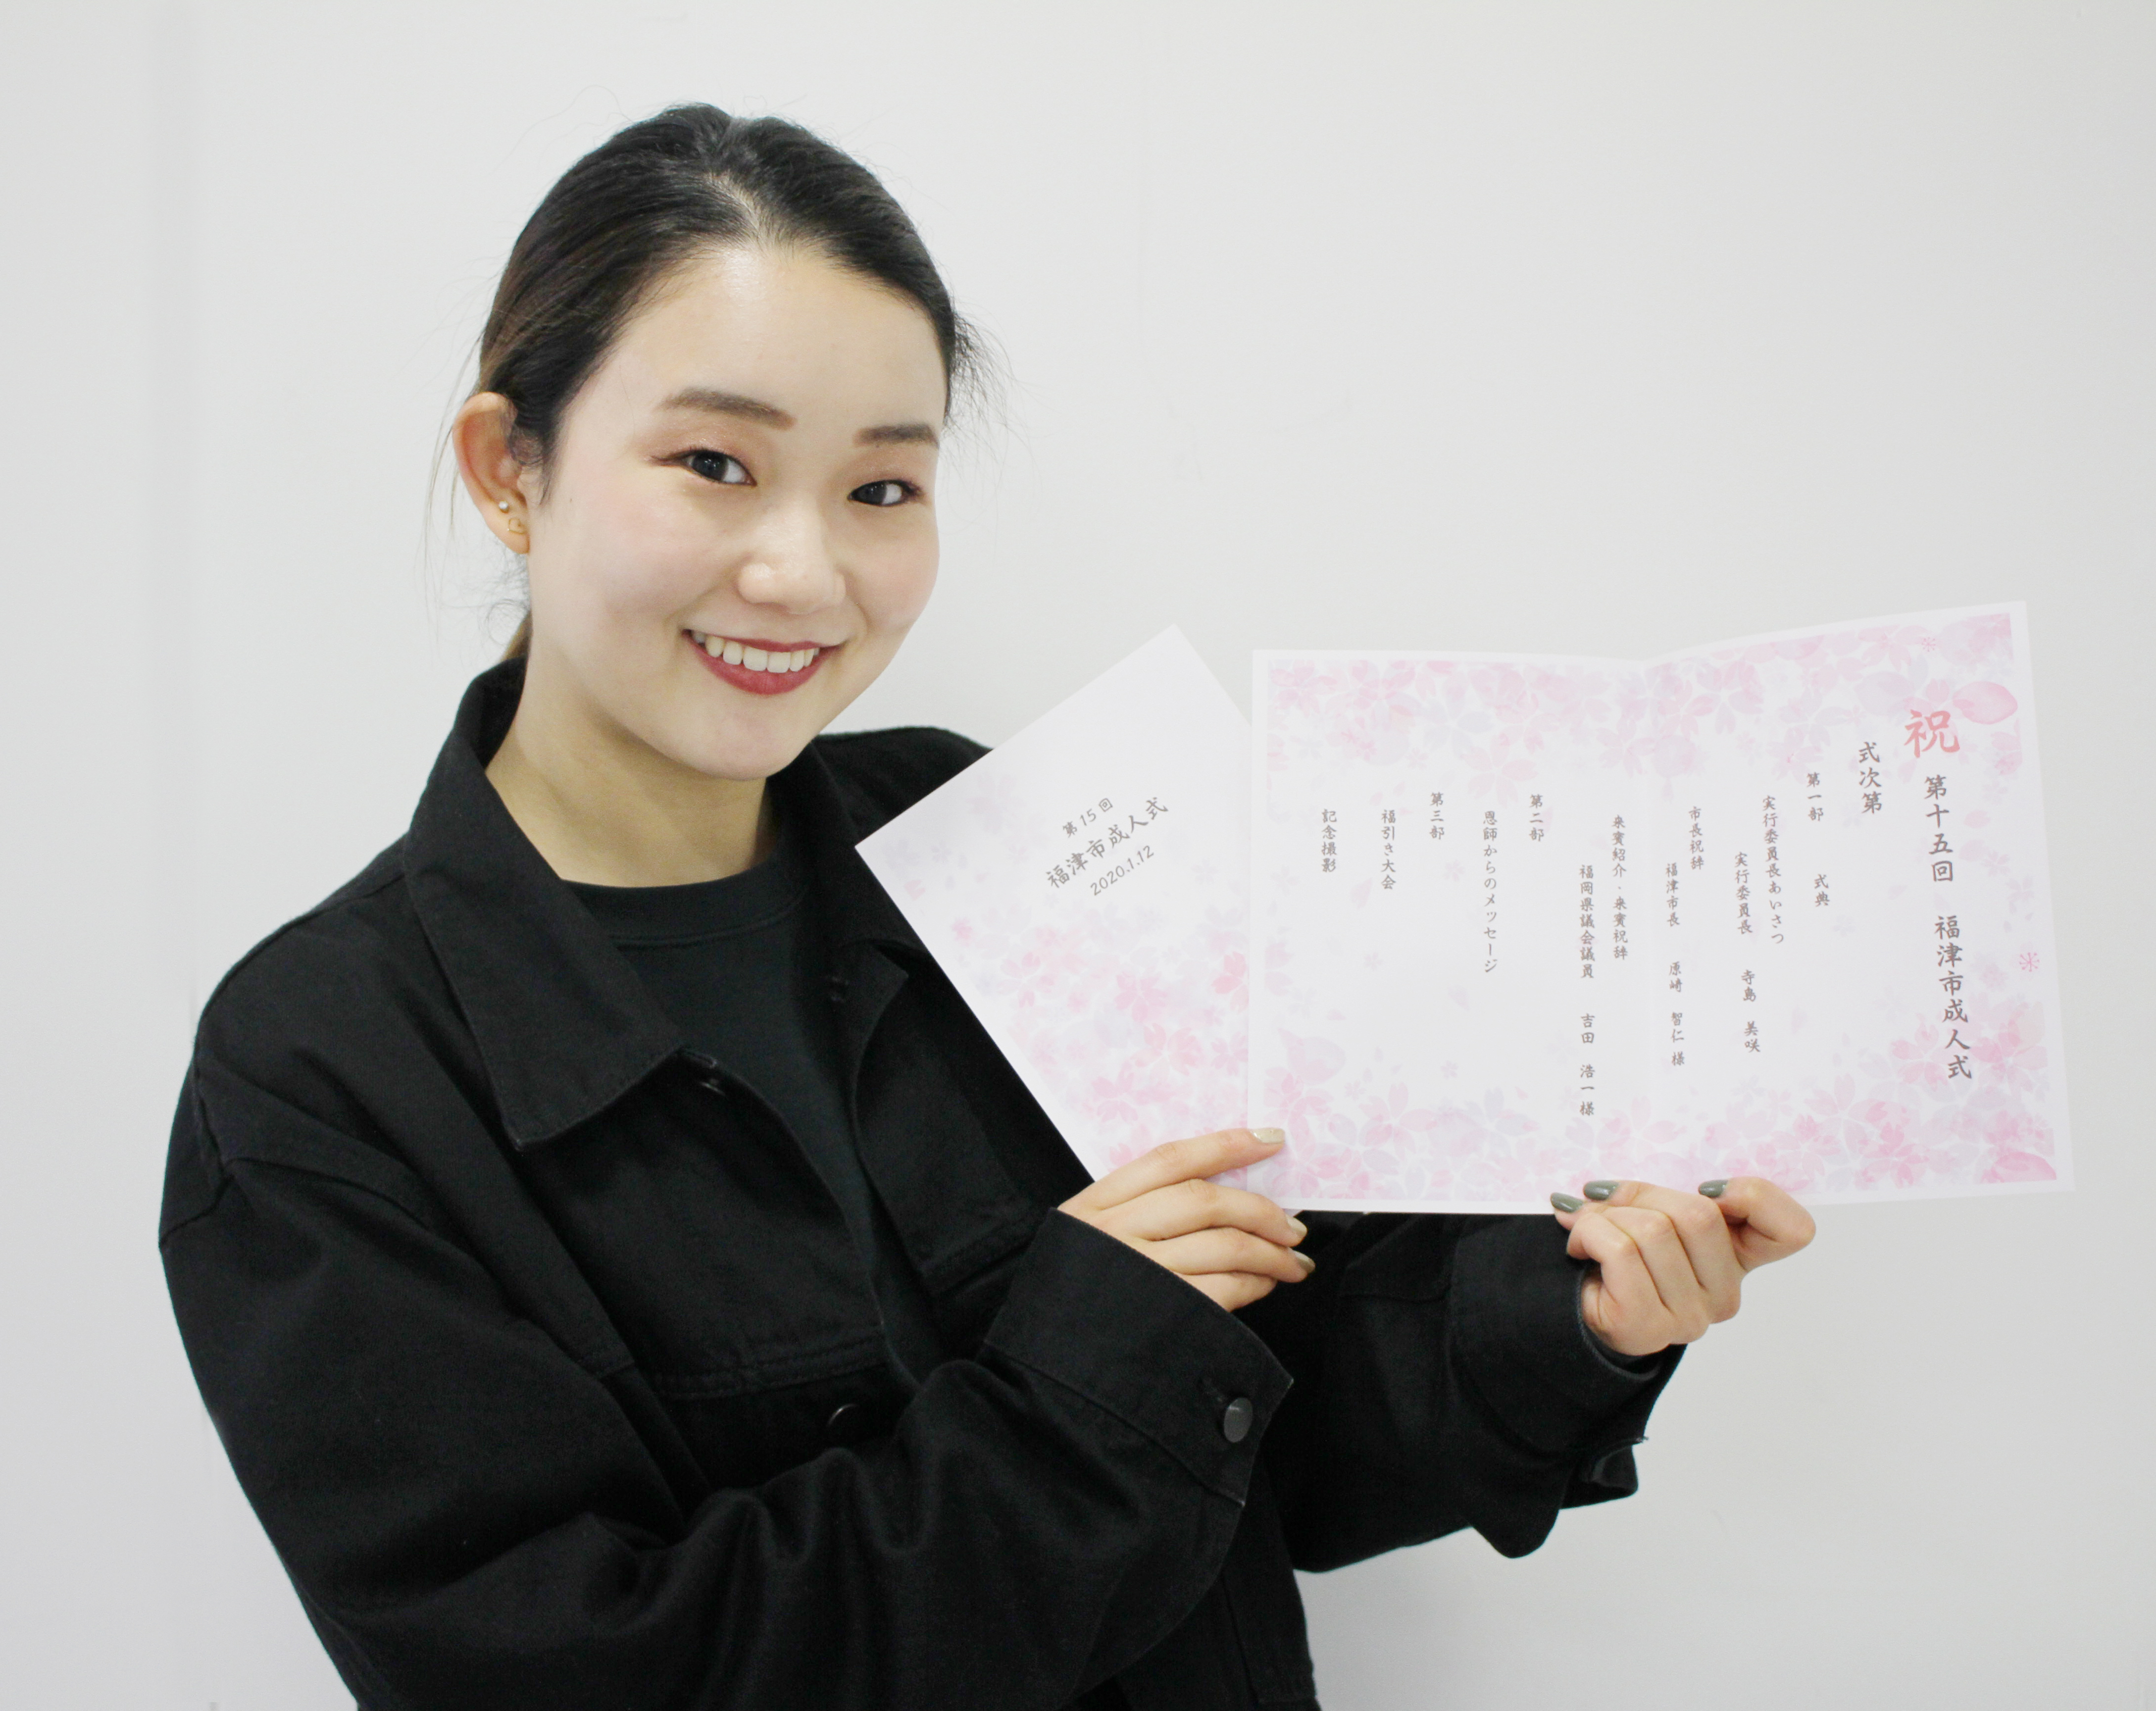 第15回
福津市成人式
2020.1.12
祝 第十五回 福津市成人式
式次第
第一部 式典
実行委員長あいさつ
実行委員長 寺島 美咲
市長祝辞
福津市長 原崎 智仁 様
来賓紹介、来賓祝辞
福岡県議会議員 吉田 浩一 様
第二部
恩師からのメッセージ
第三部
福引き大会
記念撮影